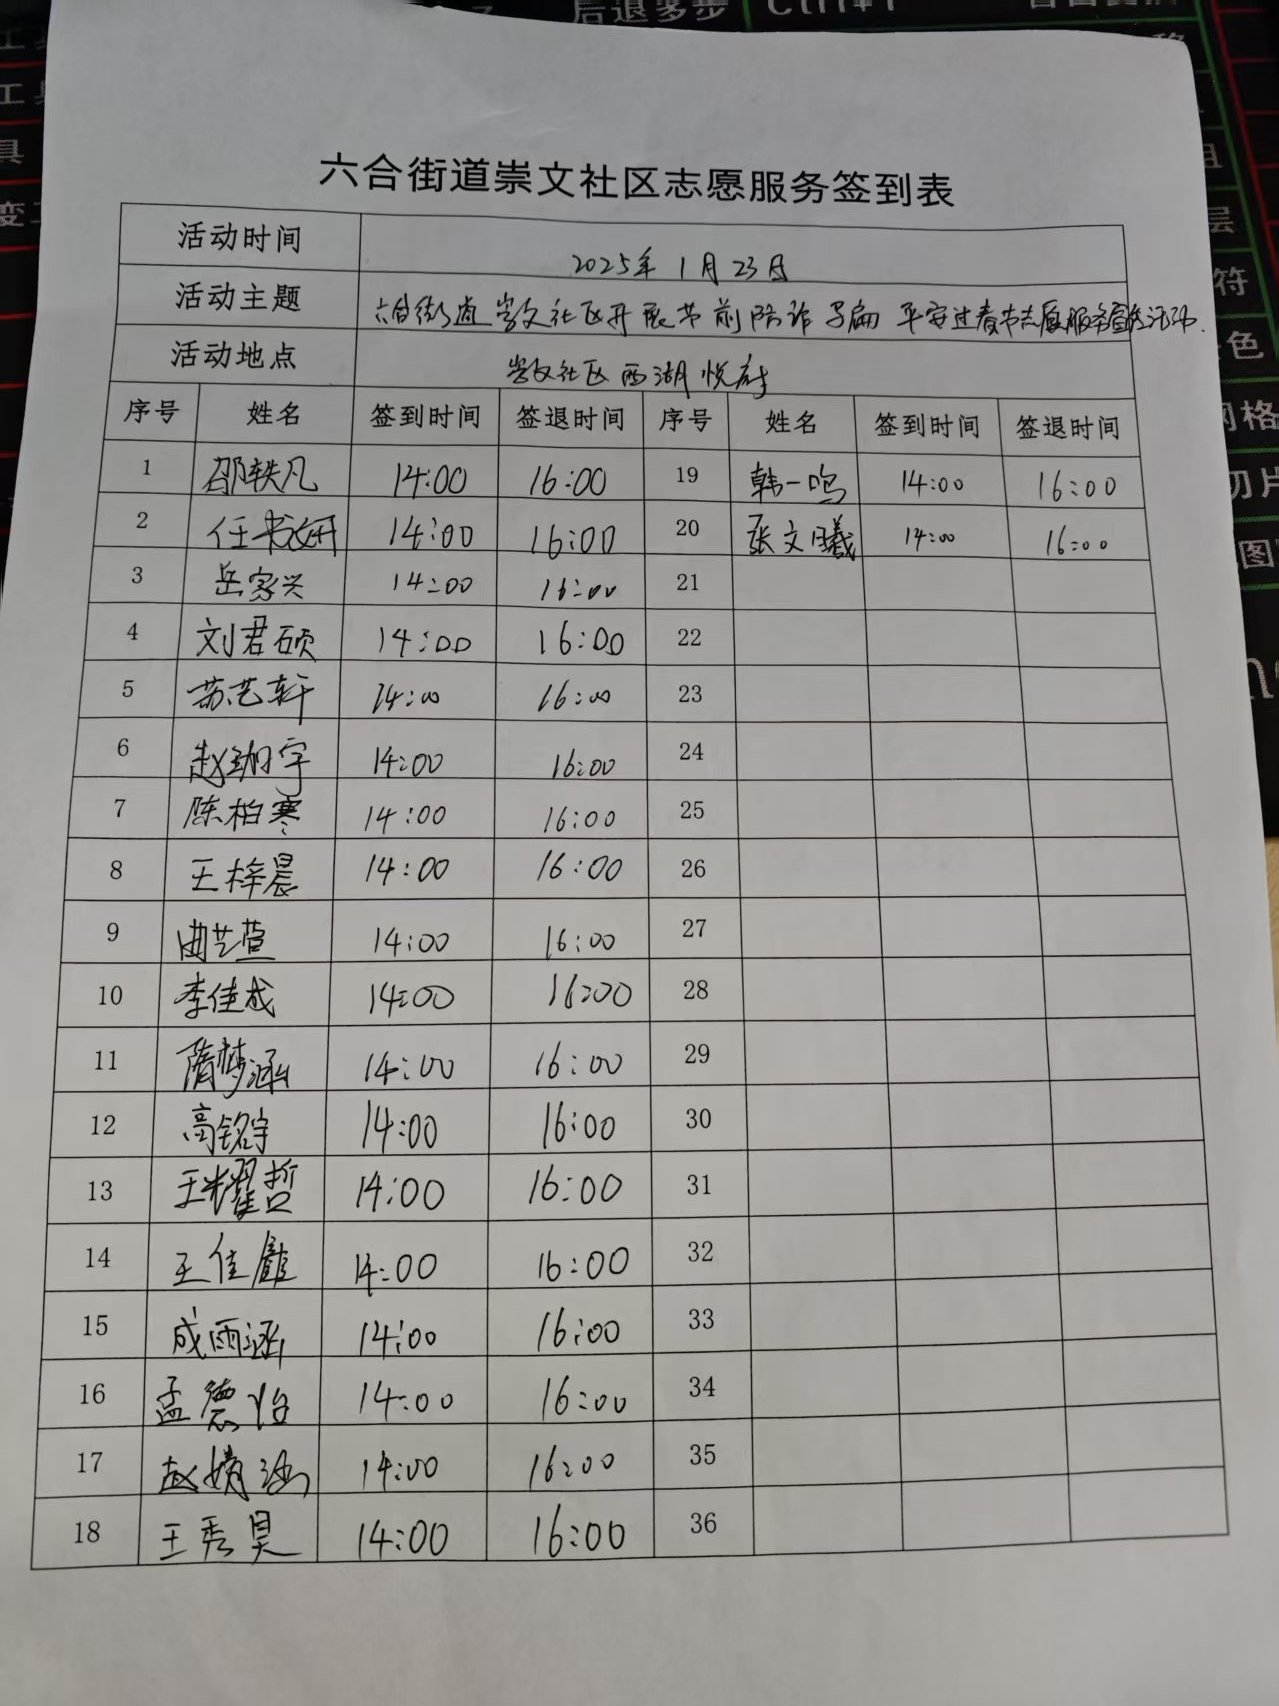 后退多步 Ctrl+
六合街道崇文社区志愿服务签到表
活动时间 2025年1月23日
活动主题 六合街道崇文社区开展节前防诈骗 平安过春节志愿服务宣传活动.
活动地点 崇文社区西湖悦府
序号 姓名 签到时间 签退时间 序号 姓名 签到时间 签退时间
1 邵轶凡 14:00 16:00 19 韩一鸣 14:00 16:00
2 任书妍 14:00 16:00 20 张文曦 14:00 16:00
3 岳家兴 14:00 16:00 21
4 刘君硕 14:00 16:00 22
5 苏艺轩 14:00 16:00 23
6 赵珈宇 14:00 16:00 24
7 陈柏寒 14:00 16:00 25
8 王梓晨 14:00 16:00 26
9 曲艺萱 14:00 16:00 27
10 李佳成 14:00 16:00 28
11 隋梦涵 14:00 16:00 29
12 高铭宇 14:00 16:00 30
13 王耀哲 14:00 16:00 31
14 王佳 14:00 16:00 32
15 成雨涵 14:00 16:00 33
16 孟德怡 14:00 16:00 34
17 赵婧涵 14:00 16:00 35
18 王秀昊 14:00 16:00 36